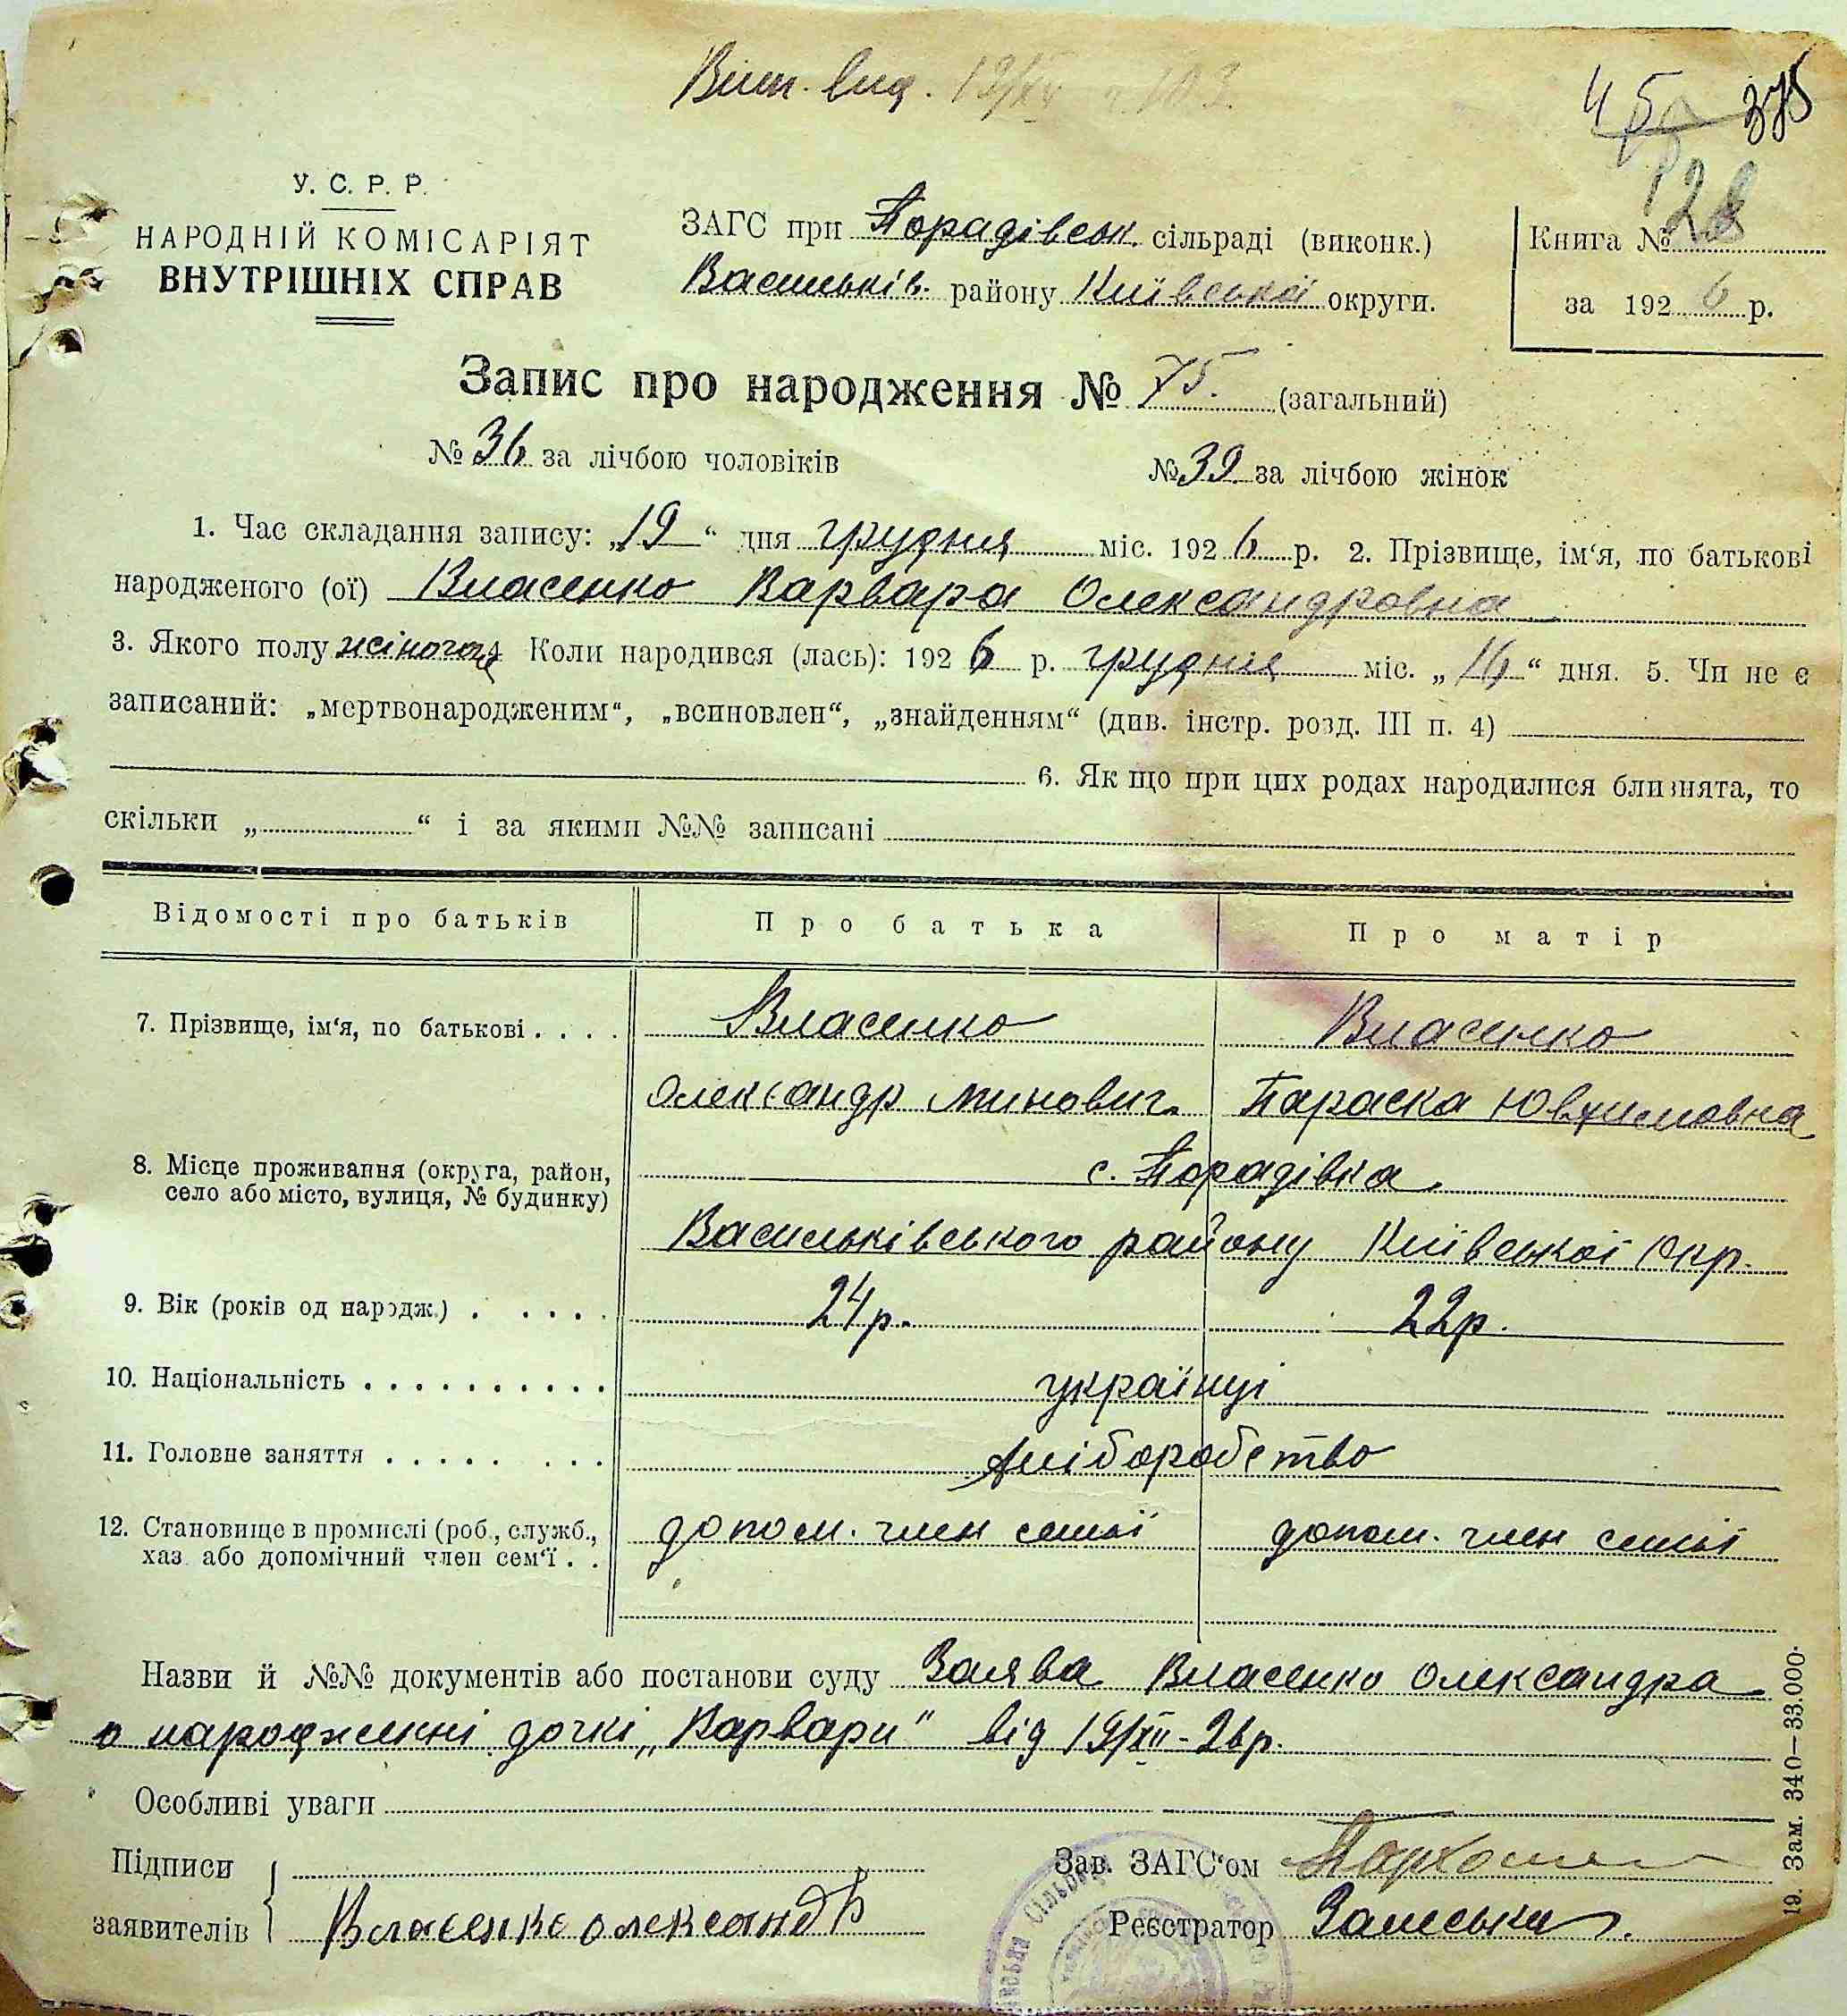 Вип. вид. 19/XII № 103.
45 375
28
У. С. Р. Р.
НАРОДНІЙ КОМІСАРІЯТ
ВНУТРІШНІХ СПРАВ
ЗАГС при Порадівськ. сільраді (виконк.)
Васильків. району Київської округи.
Книга №
за 1926 р.
Запис про народження № 75. (загальний)
№ 36 за лічбою чоловіків № 39 за лічбою жінок
1. Час складання запису: „19“ дня грудня міс. 1926 р. 2. Прізвище, ім‘я, по батькові
народженого (ої) Власенко Варвара Олександровна
3. Якого полу жіночого Коли народився (лась): 1926 р. грудня міс. „16“ дня. 5. Чи не є
записаний: „мертвонародженим“, „всиновлен“, „знайденням“ (див. інстр. розд. III п. 4)
6. Як що при цих родах народилися близнята, то
скільки „ “ і за якими №№ записані
Відомості про батьків Про батька Про матір
7. Прізвище, ім‘я, по батькові . . . . Власенко Власенко
Олександр Минович. Параска Ювхимовна
8. Місце проживання (округа, район, село або місто, вулиця, № будинку) с. Порадівка
Васильківського району Київської окр.
9. Вік (років од народж.) . . . . . 24 р. 22 р.
10. Національність . . . . . . . . . . українці
11. Головне заняття . . . . . . . . хліборобство
12. Становище в промислі (роб., служб., допом. член семьї допом. член семьї
хаз. або допомічний член сем‘ї . .
Назви й №№ документів або постанови суду Заява Власенко Олександра
о народженні дочкі „Варвари“ від 19/XII-26 р.
Особливі уваги
Підписи
заявителів Власенко олександр
Зав. ЗАГС‘ом Пархомен
Реєстратор
19. Зам. 340—33.000.